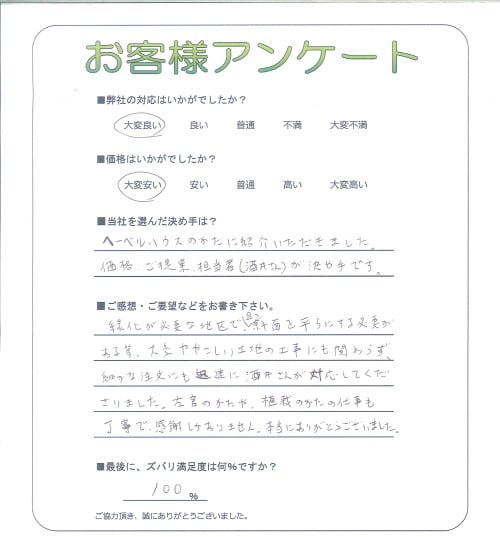 お客様アンケート
■弊社の対応はいかがでしたか？
大変良い 良い 普通 不満 大変不満
■価格はいかがでしたか？
大変安い 安い 普通 高い 大変高い
■当社を選んだ決め手は？
ヘーベルハウスのかたに紹介いただきました。
価格、ご提案、担当者(酒井さん)が決め手です。
■ご感想・ご要望などをお書き下さい。
緑化が必要な地区で、斜面を平らにする必要が
ある等、大変ややこしい土地の工事にも関わらず、
細かな注文にも迅速に酒井さんが対応してくだ
さりました。左官のかたや、植栽のかたの仕事も
丁寧で、感謝しかありません。本当にありがとうございました。
■最後に、ズバリ満足度は何％ですか？
100 %
ご協力頂き、誠にありがとうございました。